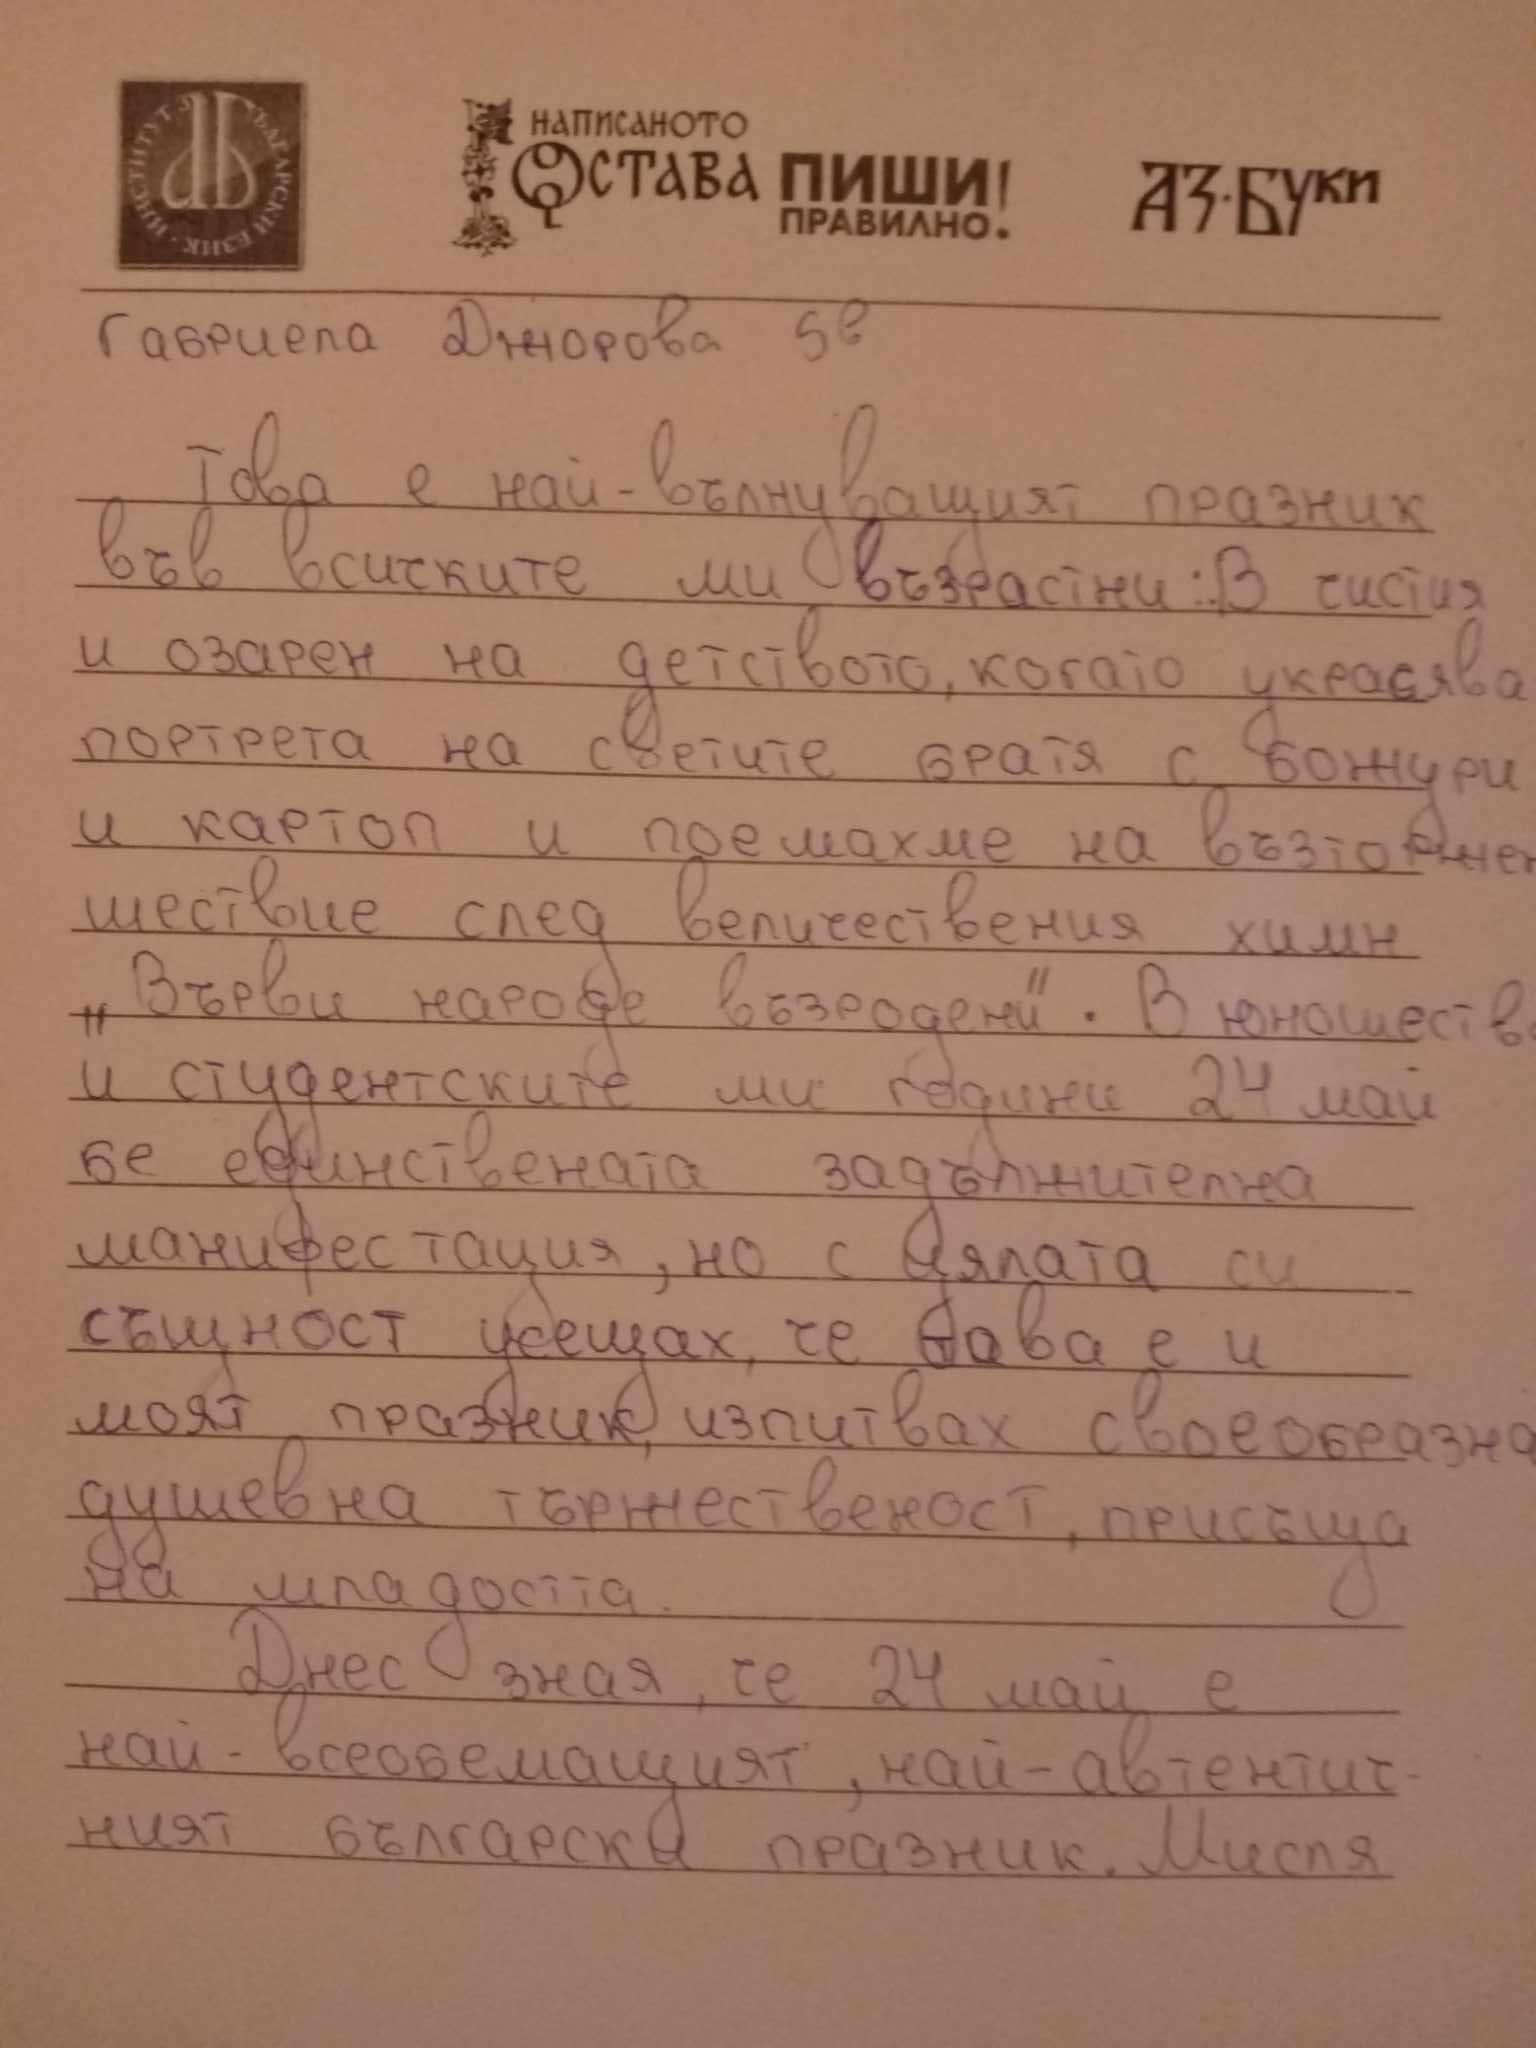 ИНСТИТУТ ЗА БЪЛГАРСКИ ЕЗИК
НАПИСАНОТО
ОСТАВА ПИШИ
ПРАВИЛНО!
АЗ·БУКИ
Габриела Джорова 5в
Това е най-вълнуващият празник
във всичките ми възрастни: В чистия
и озарен на детството, когато украсява
портрета на светите братя с божури
и картоп и поемахме на възторжен
шествие след величествения химн
„Върви народе възродени". В юношеств
и студентските ми години 24 май
бе единствената задължителна
манифестация, но с цялата си
същност усещах, че това е и
моят празник, изпитвах своеобразна
душевна тържественост, присъща
на младостта.
Днес зная, че 24 май е
най-всеобемащият, най-автентич-
ният български празник. Мисля